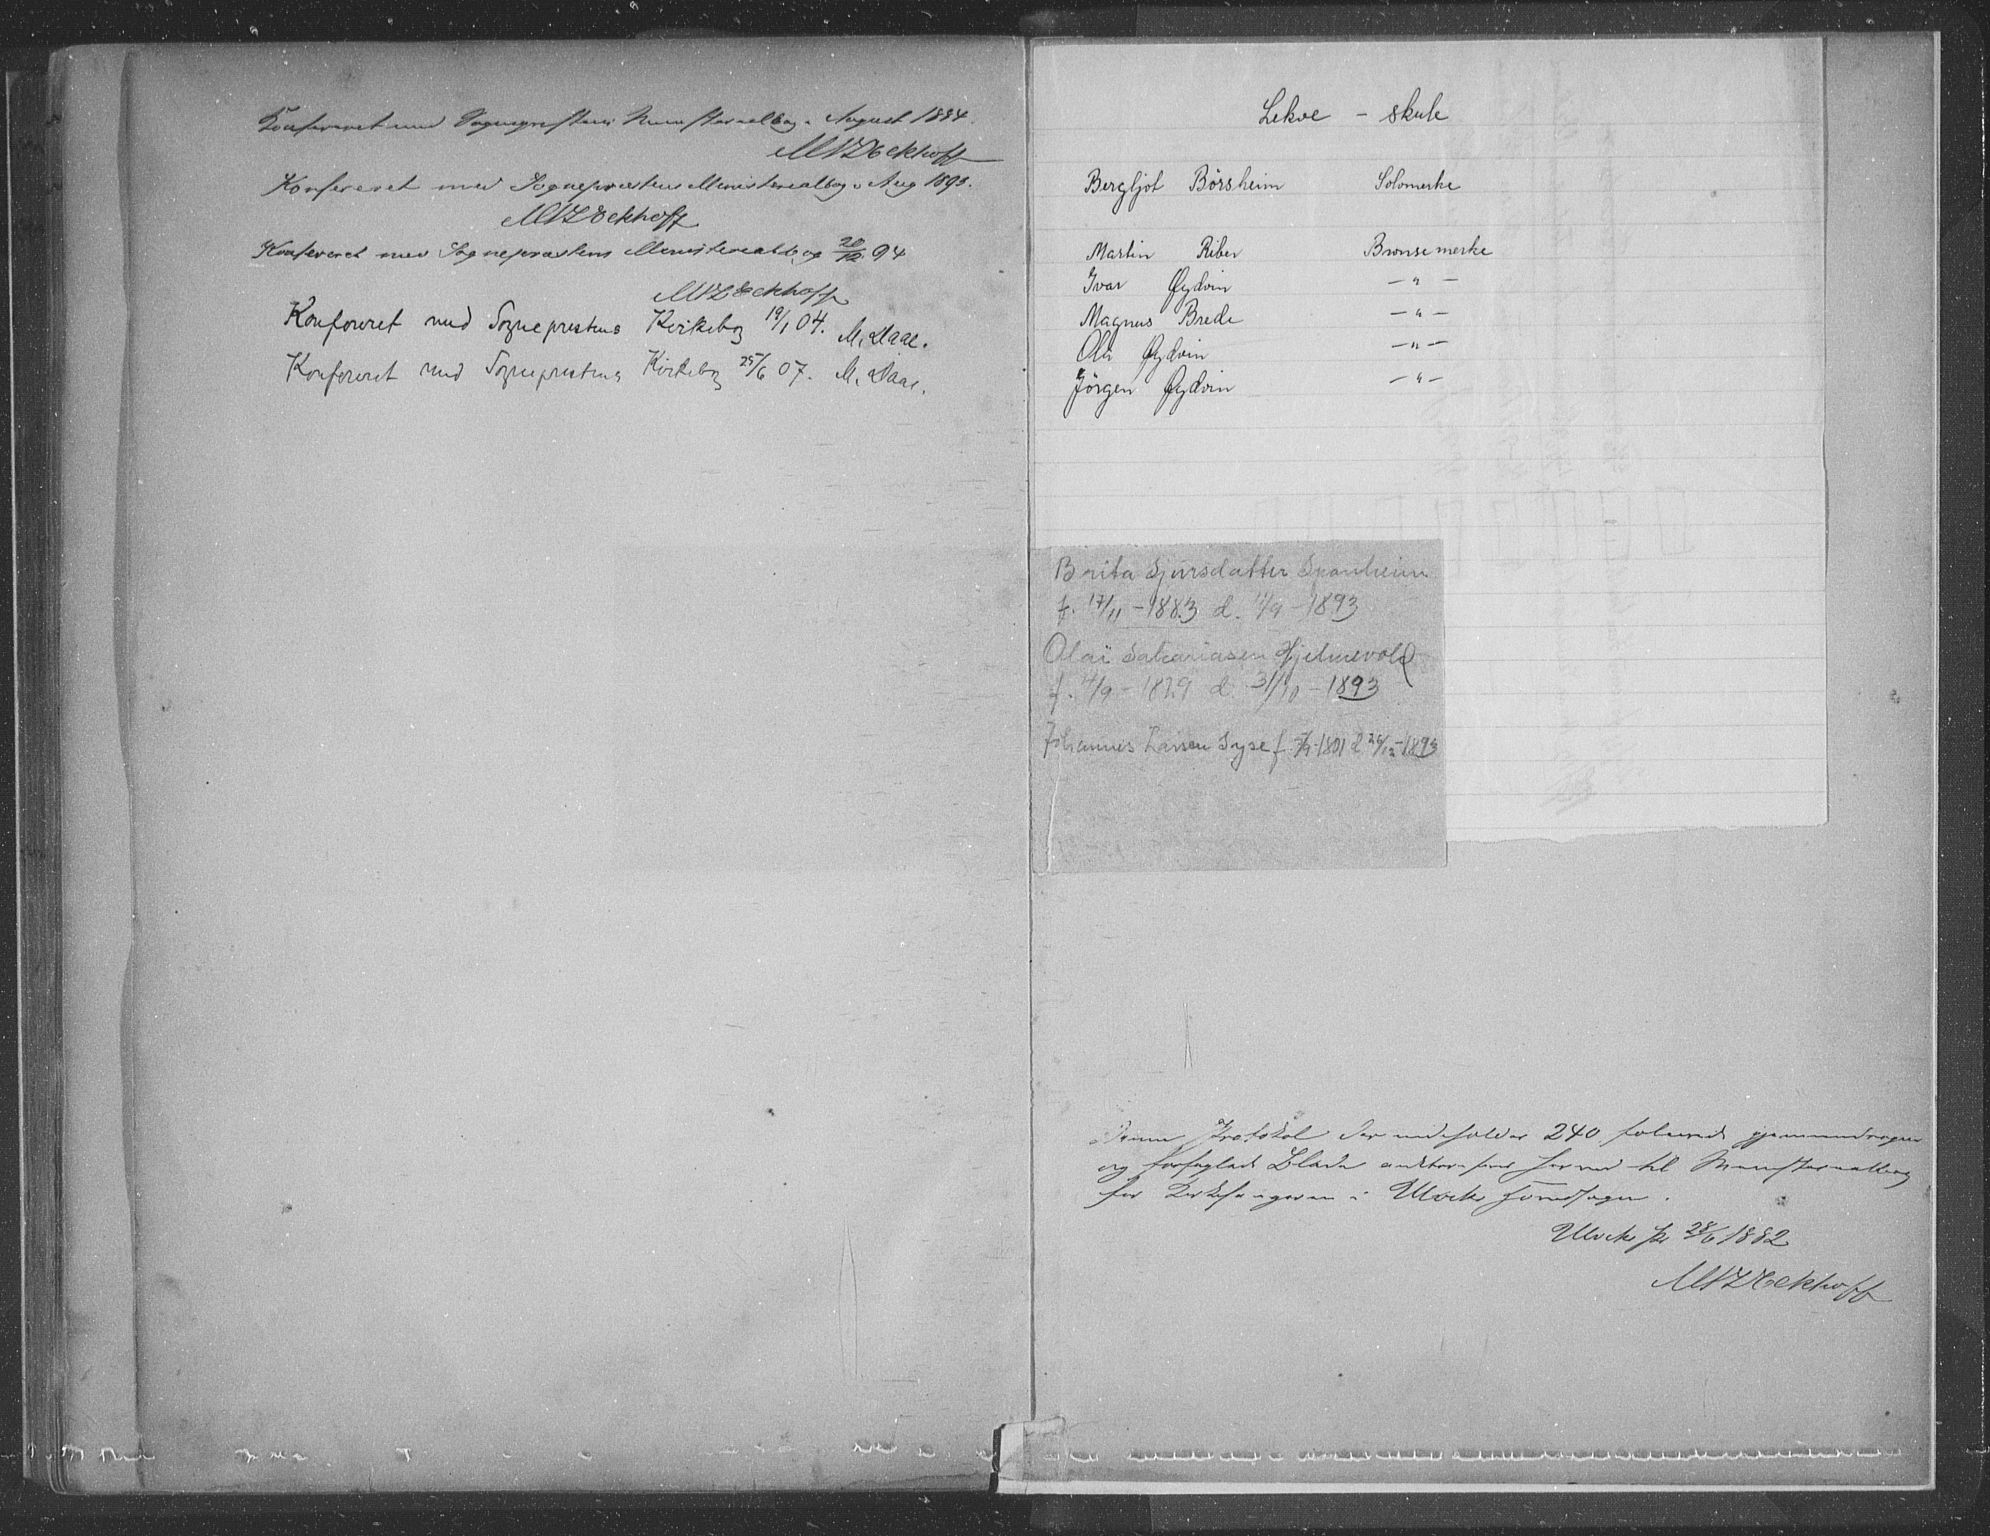 Konfereret med Sognepræstens Ministerialbog. August 1884.
MNZEckhoff
Konfereret med Sognepræstens Ministerialbog. Aug 1893.
MNZEckhoff
Konfereret med Sognepræstens Ministerialbog 20/12 94
MNZEckhoff
Konfereret med Sogneprestens Kirkebog 19/1 04. M. Daae.
Konfereret med Sogneprestens Kirkebog 25/6 07. M. Daae.
Lekve - skule
Bergljot Börsheim Sölvmerke
Martin Riber Bronsemerke
Ivar Øydvin - " -
Magnus Brede - " -
Ola Øydvin - " -
Jörgen Øydvin - " -
Brita Sjursdatter Sponheim
f. 17/11 - 1883 d. 11/9 - 1893
Olai Sakariasen Hjelmevold
f. 4/9 - 1829 d. 31/10 - 1893
Johannes Larsen Syse f. 1801 d 26/12 - 1893
Denne Protokol der indeholder 240 folierede gjennemdragne
og forseglede Blade authoriseres herved til Ministerialbog
for Kirkesangeren i Ulvik Hovedsogn.
Ulvik 28/6 1882
MNZEckhoff